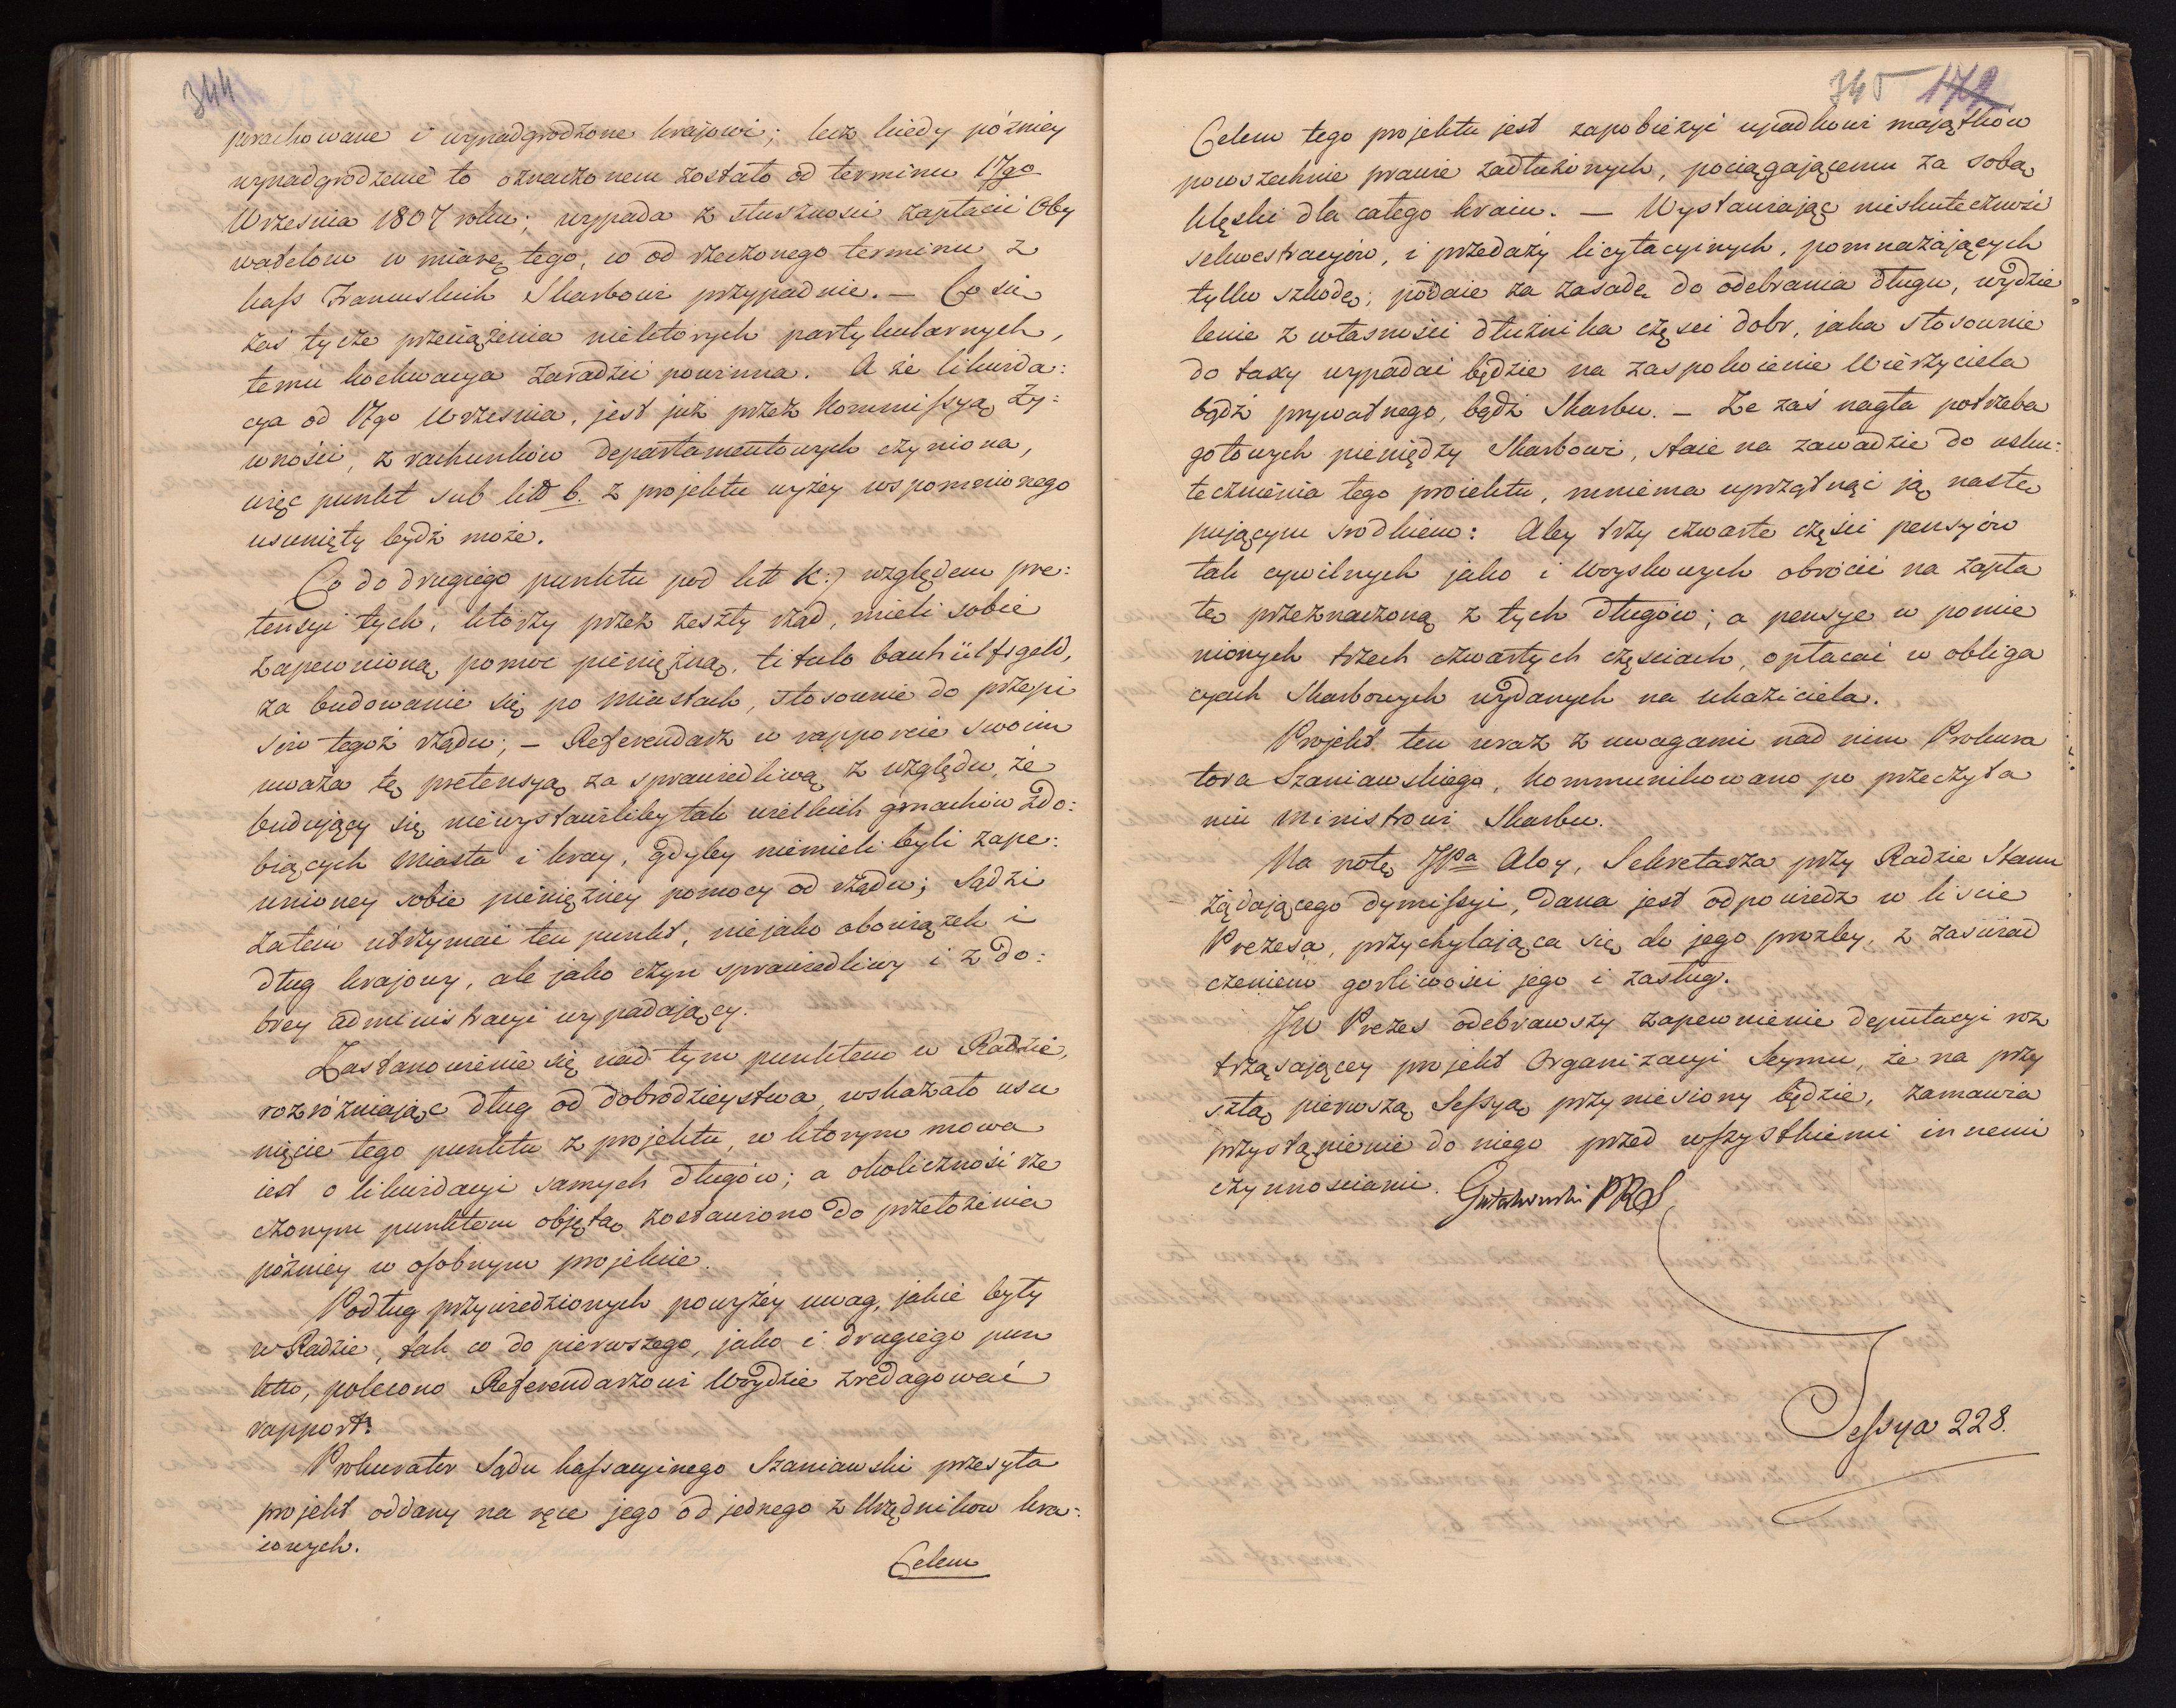 344
porachowane i wynadgrodzone krajowi; lecz kiedy późniey
wynadgrodzenie to oznaczonem zostało od terminu 17go
Września 1807 roku; wypada z słuszności zapłacić Oby
watelom w miarę tego, co od rzeczonego terminu z
kass Francuskich Skarbowi przypadnie. — Co się
zaś tycze przeciążenia niektorych partykularnych,
temu koekwacya zaradzić powinna. A że likwida:
cya od 17go Września, jest już przez Kommissyą Ży:
wności, z rachunków departamentowych czyniona,
więc punkt sub litt b. z projektu wyżey wspomnionego
usunięty bydź może.
Co do drugiego punktu pod litt K:) względem pre:
tensyi tych, którzy przez zeszły rząd, mieli sobie
zapewnioną pomoc pieniężną, titulo bauhülfsgeld,
za budowanie się po miastach, stosownie do przepi
sów tegoż rządu; — Referendarz w rapporcie swoim
uważa tę pretensyą za sprawiedliwą z względu, że
budujący się niewystawiliby tak wielkich gmachów zdo:
biących miasta i kray, gdyby niemieli byli zape:
wnioney sobie pieniężney pomocy od rządu; sądzi
zatem utrzymać ten punkt, niejako obowiązek i
dług krajowy, ale jako czyn sprawiedliwy i z do:
brey administracyi wypadający.
Zastanowienie się nad tym punktem w Radzie,
rozróżniając dług od dobrodzieystwa, wskazało usu
nięcie tego punktu z projektu, w ktorym mowa
iest o likwidacyi samych długów; a okoliczność rze
czonym punktem objętą zostawiono do przełożenia
późniey w osobnym projekcie.
Podług przywiedzionych powyżey uwag, jakie były
w Radzie, tak co do pierwszego, jako i drugiego pun
ktu, polecono Referendarzowi Woydzie zredagować
rapport.
Prokurator Sądu kassacyinego Szaniawski przesyła
projekt oddany na ręce jego od jednego z Urzędnikow kra:
iowych.
Celem
345 172
Celem tego projektu jest zapobieżyć upadkowi majątków
powszechnie prawie zadłużonych, pociągającemu za sobą
klęski dla całego kraiu. — Wystawiając nieskuteczność
sekwestracyów, i przedaży licytacyinych, pomnażających
tylko szkodę; podaie za zasadę do odebrania długu, wydzie
lenie z własności dłużnika częsci dobr, jaka stosownie
do taxy wypadać będzie na zaspokoienie Wierzyciela
bądź prywatnego, bądź Skarbu. — Że zaś nagła potrzeba
gotowych pieniędzy Skarbowi, staie na zawadzie do usku:
tecznienia tego proiektu, mniema uprzątnąć ją nastę
pującym srodkiem: Aby trzy czwarte części pensyów
tak cywilnych jako i Woyskowych obrócić na zapła
tę przeznaczoną z tych długów; a pensye w pomie
nionych trzech czwartych częsciach, opłacać w obliga
cyach Skarbowych wydanych na ukaziciela.
Projekt ten wraz z uwagami nad nim Prokura
tora Szaniawskiego, kommunikowano po przeczyta
niu Ministrowi Skarbu.
Na notę JPa Aloy, Sekretarza przy Radzie Stanu
żądającego dymissyi, dana jest odpowiedz w liscie
Prezesa, przychylająca się do jego prozby, z zaswiad
czeniem gorliwości jego i zasług.
JW Prezes odebrawszy zapewnienie deputacyi roz
trząsającey projekt Organizacyi Seymu, że na przy
szłą pierwszą Sessyą przyniesiony będzie, zamawia
przystąpienie do niego przed wszystkiemi innemi
czynnosciami. Gutakowski PRS
Sessya 228.